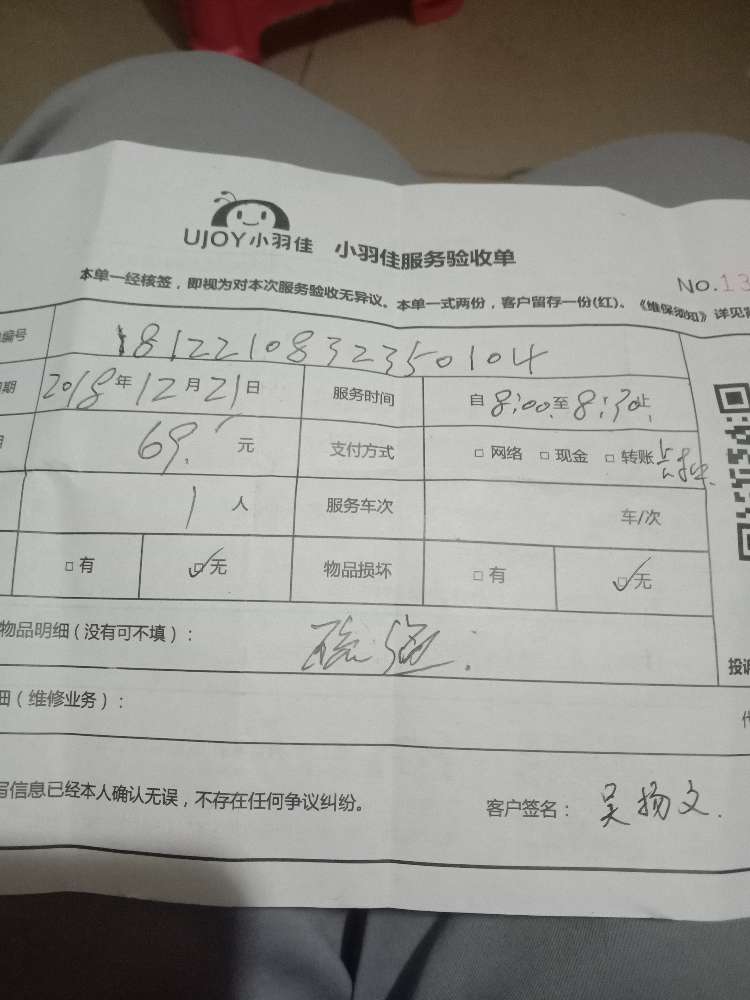 UJOY小羽佳 小羽佳服务验收单
NO.13
本单一经核签，即视为对本次服务验收无异议。本单一式两份，客户留存一份(红)。《维保须知》详见背
编号 1812210832350104
期 2018年12月21日 服务时间 自8:00至8:30止
69. 元 支付方式 □网络 □现金 □转账
1人 服务车次 车/次
□有 □无 物品损坏 □有 □无
物品明细(没有可不填)：
投诉
细(维修业务)：
写信息已经本人确认无误，不存在任何争议纠纷。 客户签名：吴扬文.